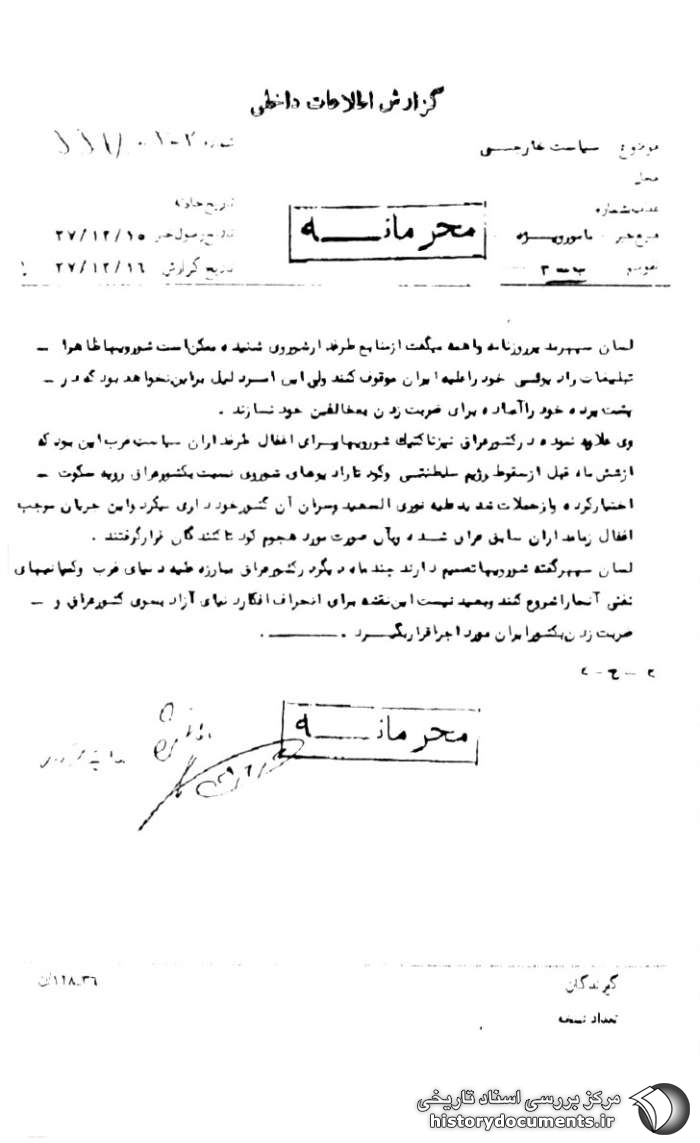 گزارش اطلاعات داخلی
موضوع سیاست خارجی
شماره
محل
عطف بشماره
تاریخ حادثه
منبع خبر مامور ویژه
تاریخ وصول خبر ۳۷/۱۲/۱۵
تقویم ب ـ ۳
تاریخ گزارش ۳۷/۱۲/۱۶
محرمانـــه
لسان سپهر مدیر روزنامه واهمه میگفت از منابع طرفدار شوروی شنیده ممکن است شورویها ظاهرا ـ
تبلیغات رادیوئی خود را علیه ایران موقوف کنند ولی این امر دلیل بر این نخواهد بود که در ـ
پشت پرده خود را آماده برای ضربت زدن بمخالفین خود نسازند .
وی علاوه نمود در کشور عراق نیز تاکتیک شورویها برای اغفال طرفداران سیاست غرب این بود که
از شش ماه قبل از سقوط رژیم سلطنتی وکودتا رادیوهای شوروی نسبت بکشور عراق رویه سکوت ـ
اختیار کرده و از حملات شدید علیه نوری السعید وسران آن کشور خودداری میکرد واین جریان موجب
اغفال زمامداران سابق عراق شده وبآن صورت مورد هجوم کودتا کنندگان قرار گرفتند .
لسان سپهر گفته شورویها تصمیم دارند چند ماه دیگر در کشور عراق مبارزه علیه دنیای غرب وکمپانیهای
نفتی آنجا را شروع کنند وبعید نیست این نقشه برای انحراف افکار دنیای آزاد بسوی کشور عراق و ـ
ضربت زدن بکشور ایران مورد اجرا قرار بگیرد .
محرمانـــه
گیرندگان
تعداد نسخه
مرکز بررسی اسناد تاریخی
historydocuments.ir